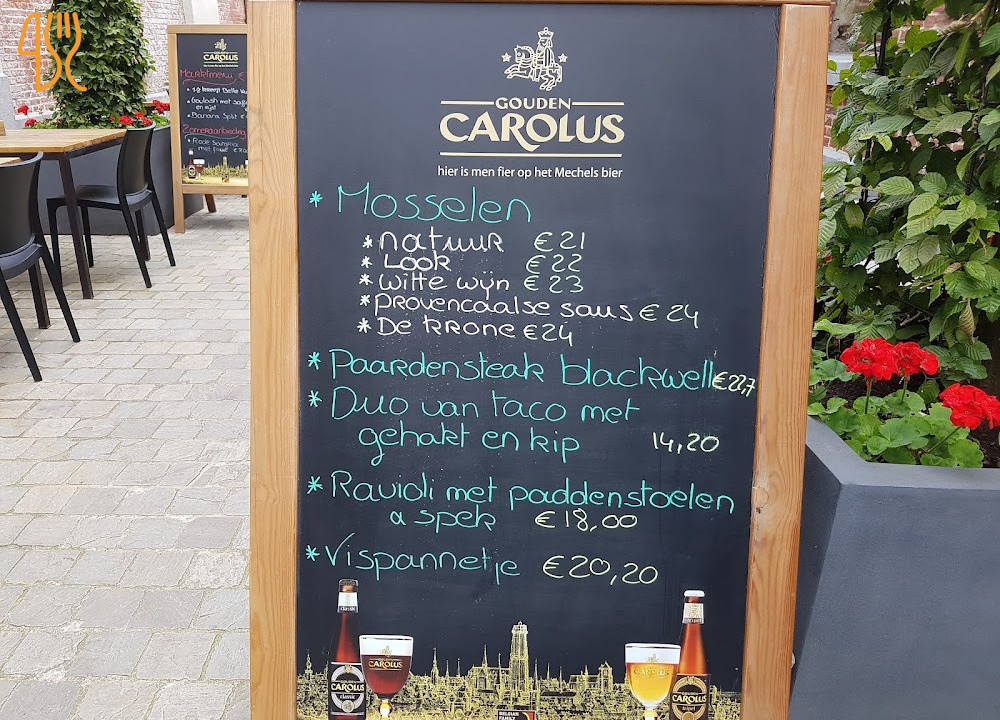 GOUDEN
CAROLUS
hier is men fier op het Mechels bier
* Mosselen
* natuur €21
* Look €22
* witte wijn €23
* provencaalse saus €24
* De krone €24
* Paardensteak blackwell €22,7
* Duo van taco met
gehakt en kip 14,20
* Ravioli met paddenstoelen
& spek €18,00
* Vispannetje €20,20
CAROLUS
classic
CAROLUS
CAROLUS
CAROLUS
CAROLUS
Marktmenu
Goulash met
en rijst
Banana Split
Rode
met